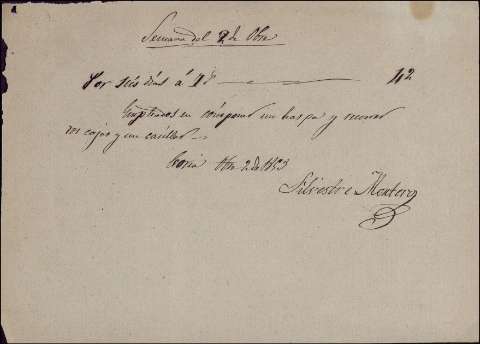 Semana del 2 de Obre
Por seis dias á 7 rs 42
Empleados en componer un haspa y
un cajon y un casillar
Soria Obre 2 de 1853
Silvestre Montero